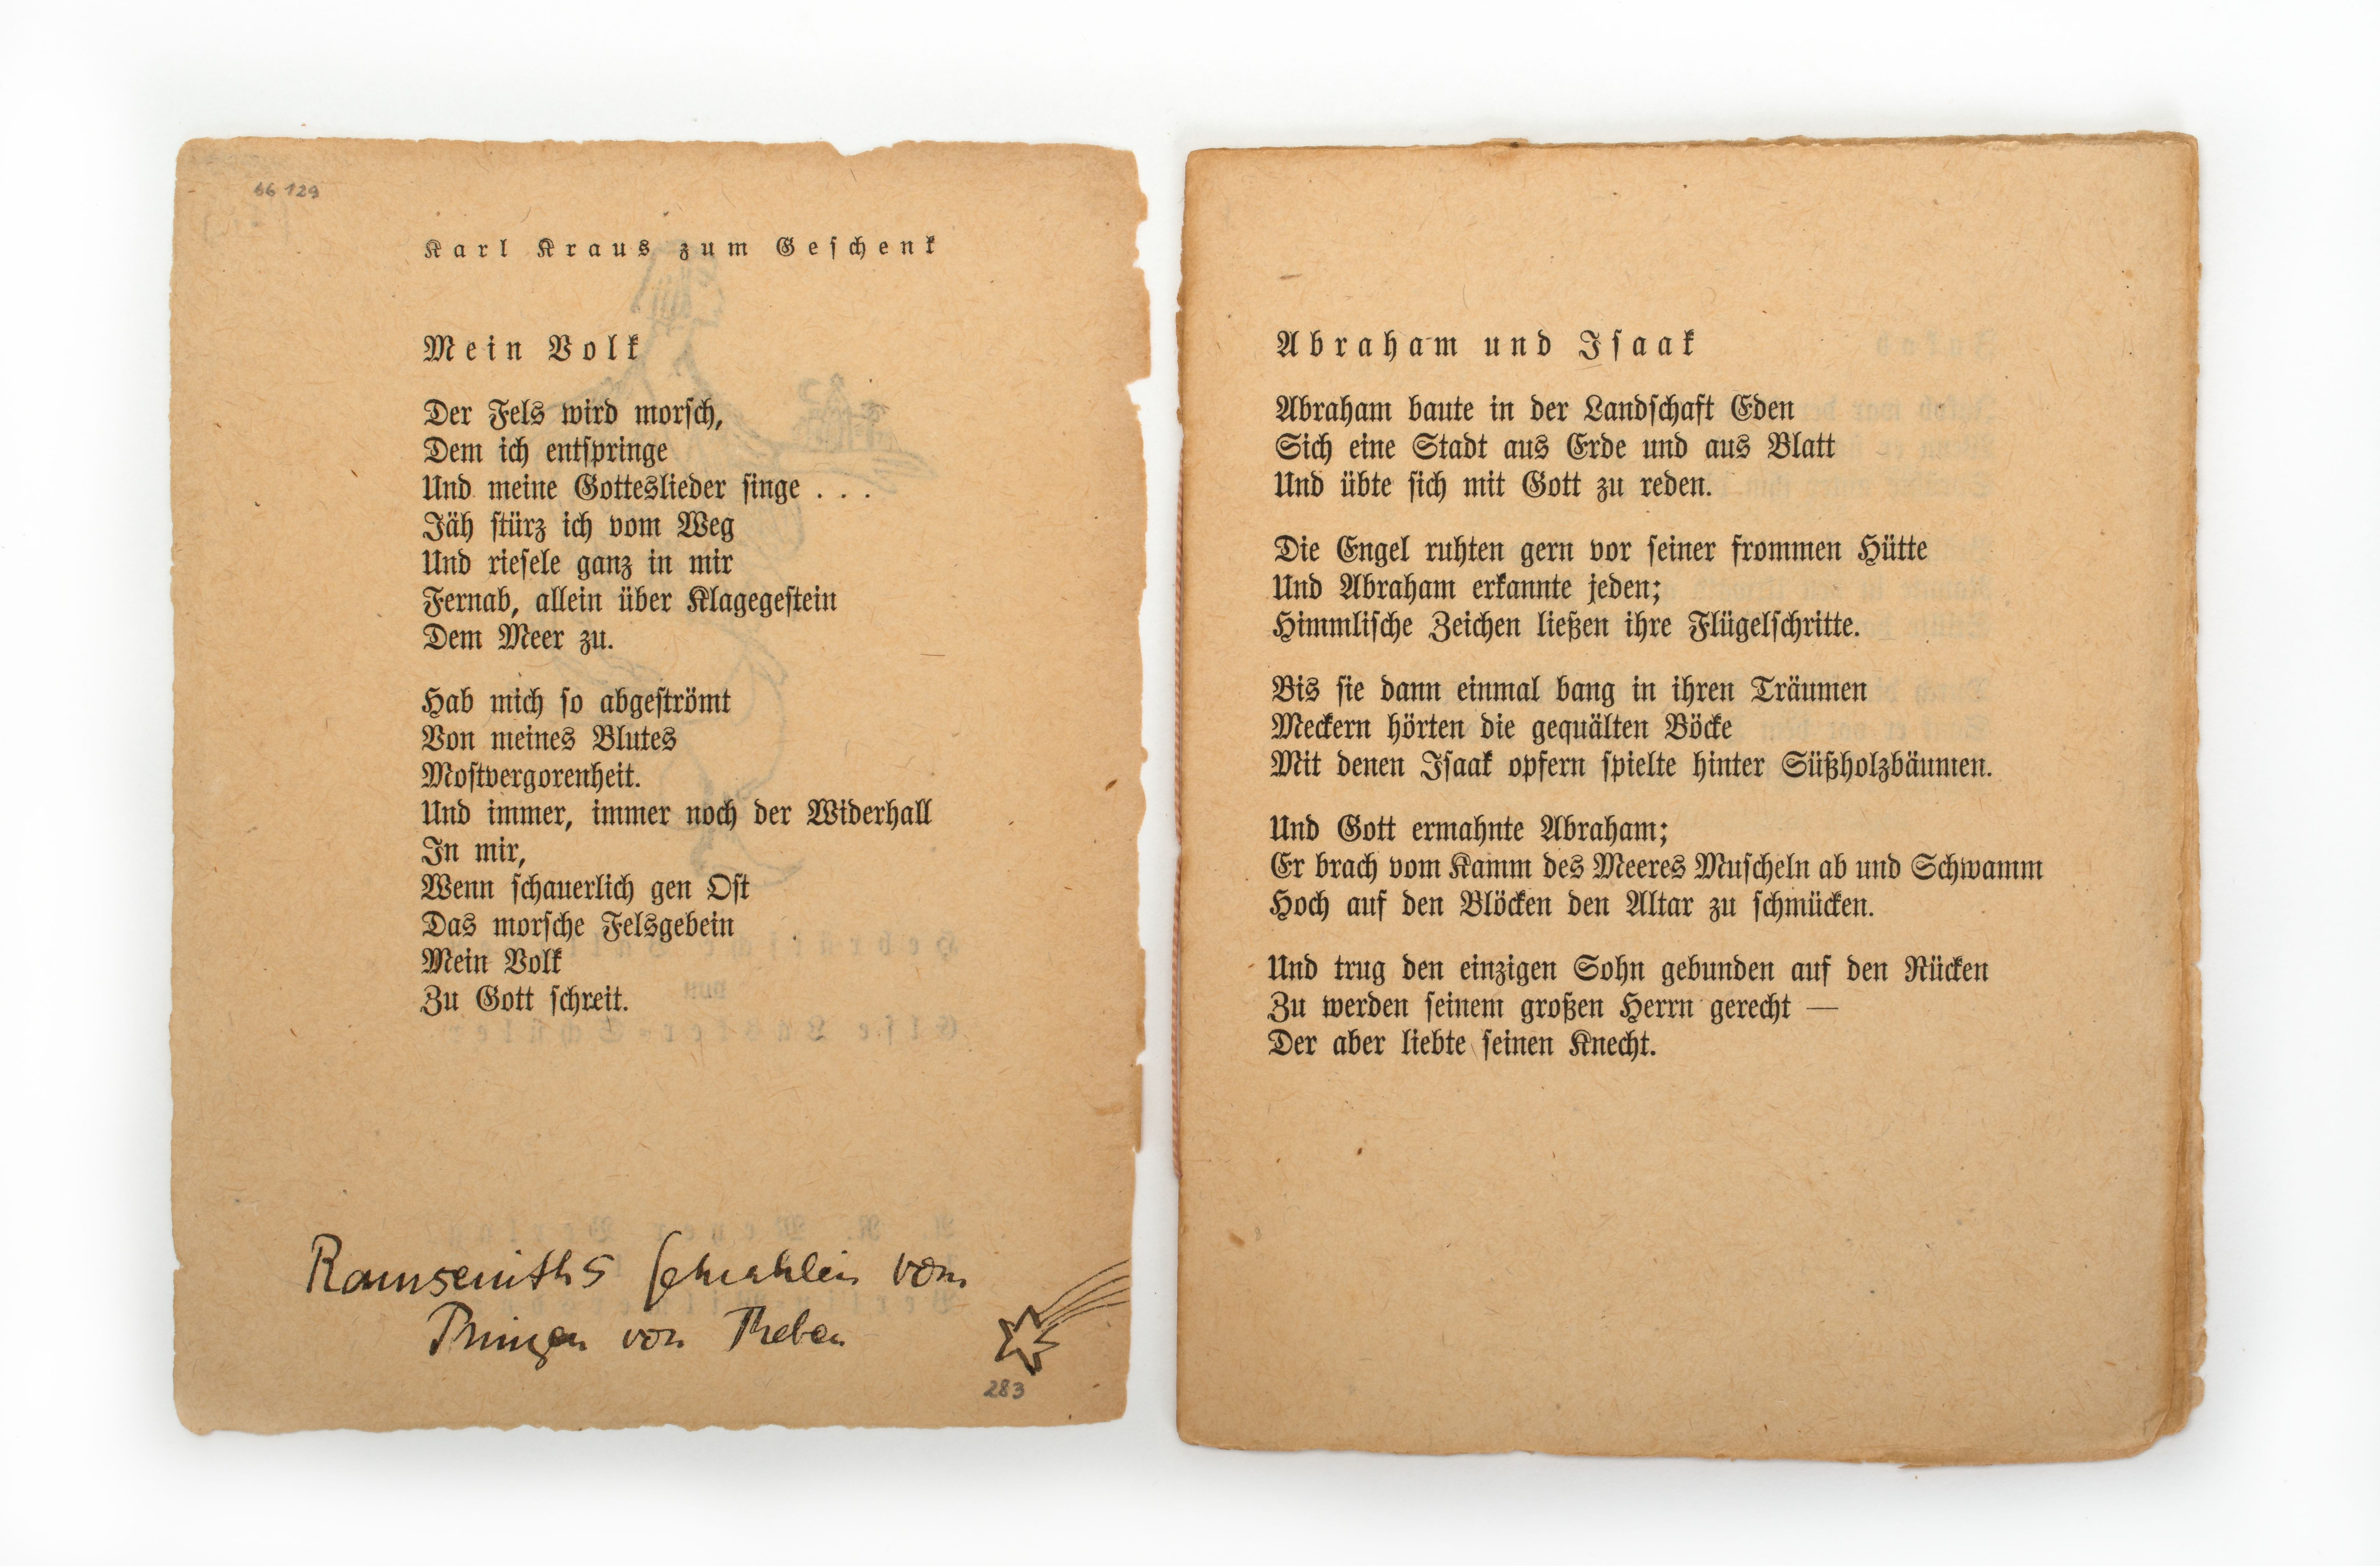 66 129
Karl Kraus zum Geschenk
Mein Volk
Der Fels wird morsch,
Dem ich entspringe
Und meine Gotteslieder singe . . .
Jäh stürz ich vom Weg
Und riesele ganz in mir
Fernab, allein über Klagegestein
Dem Meer zu.
Hab mich so abgeströmt
Von meines Blutes
Mostvergorenheit.
Und immer, immer noch der Widerhall
In mir,
Wenn schauerlich gen Ost
Das morsche Felsgebein
Mein Volk
Zu Gott schreit.
vom
Prinzen von Theben
283
Abraham und Isaak
Abraham baute in der Landschaft Eden
Sich eine Stadt aus Erde und aus Blatt
Und übte sich mit Gott zu reden.
Die Engel ruhten gern vor seiner frommen Hütte
Und Abraham erkannte jeden;
Himmlische Zeichen ließen ihre Flügelschritte.
Bis sie dann einmal bang in ihren Träumen
Meckern hörten die gequälten Böcke
Mit denen Isaak opfern spielte hinter Süßholzbäumen.
Und Gott ermahnte Abraham;
Er brach vom Kamm des Meeres Muscheln ab und Schwamm
Hoch auf den Blöcken den Altar zu schmücken.
Und trug den einzigen Sohn gebunden auf den Rücken
Zu werden seinem großen Herrn gerecht —
Der aber liebte seinen Knecht.